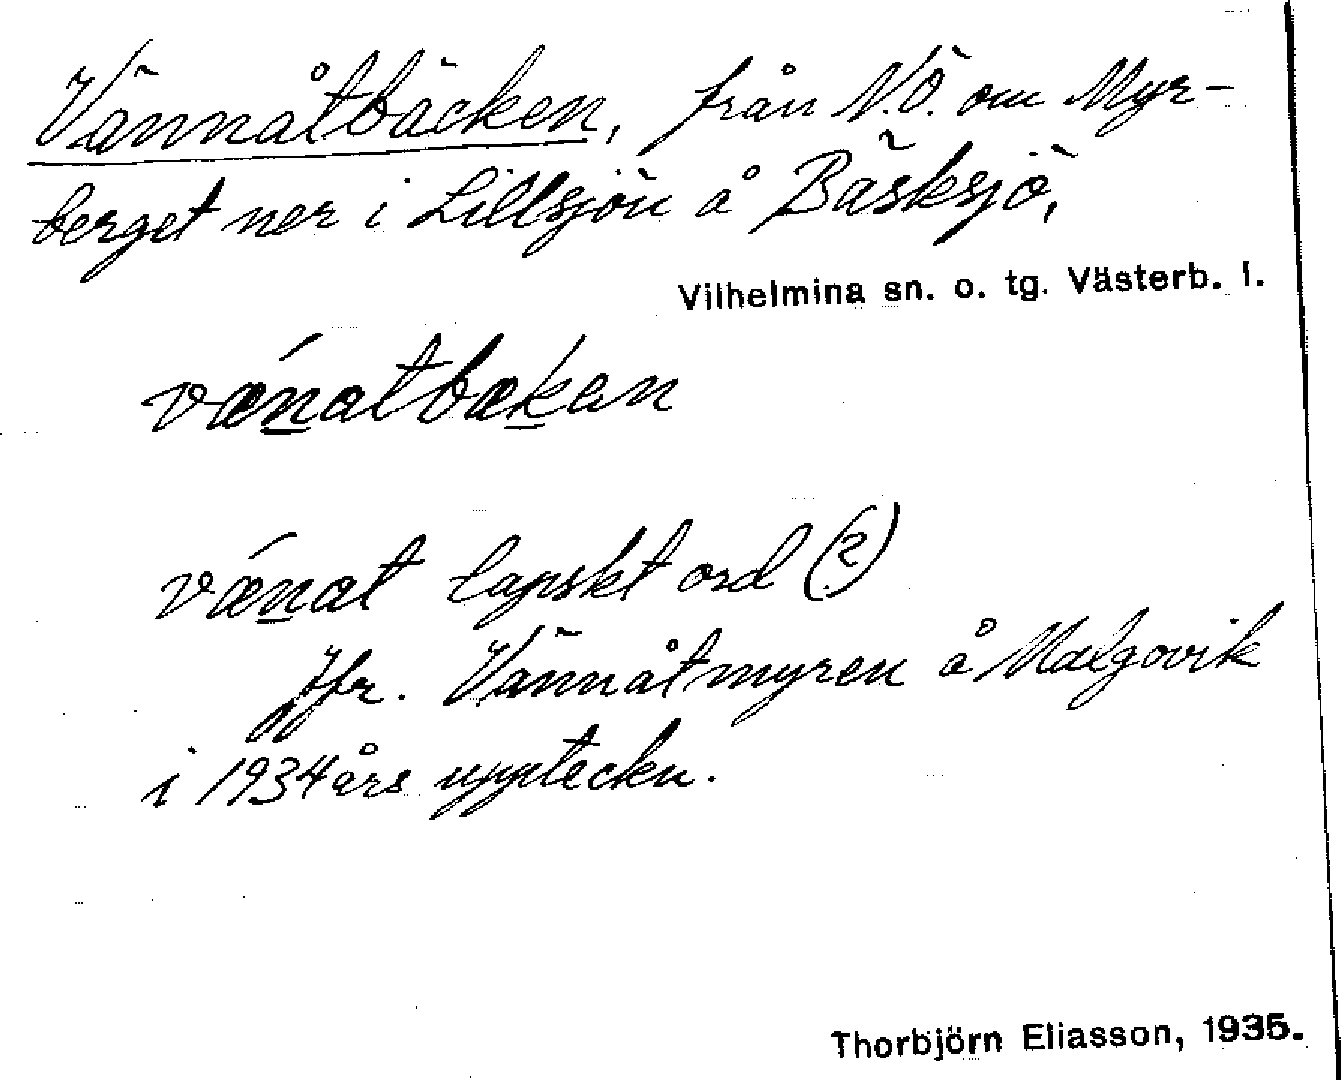 Vännåtbäcken, från N.Ö. om Myr-
berget ner i Lillsjön å Bäsksjö,
Vilhelmina sn. o. tg. Västerb. l.
vǽnatbækan
vǽnat lapskt ord (?)
Jfr. Vännåtmyren å Malgovik
i 1934 års uppteckn.
Thorbjörn Eliasson, 1935.